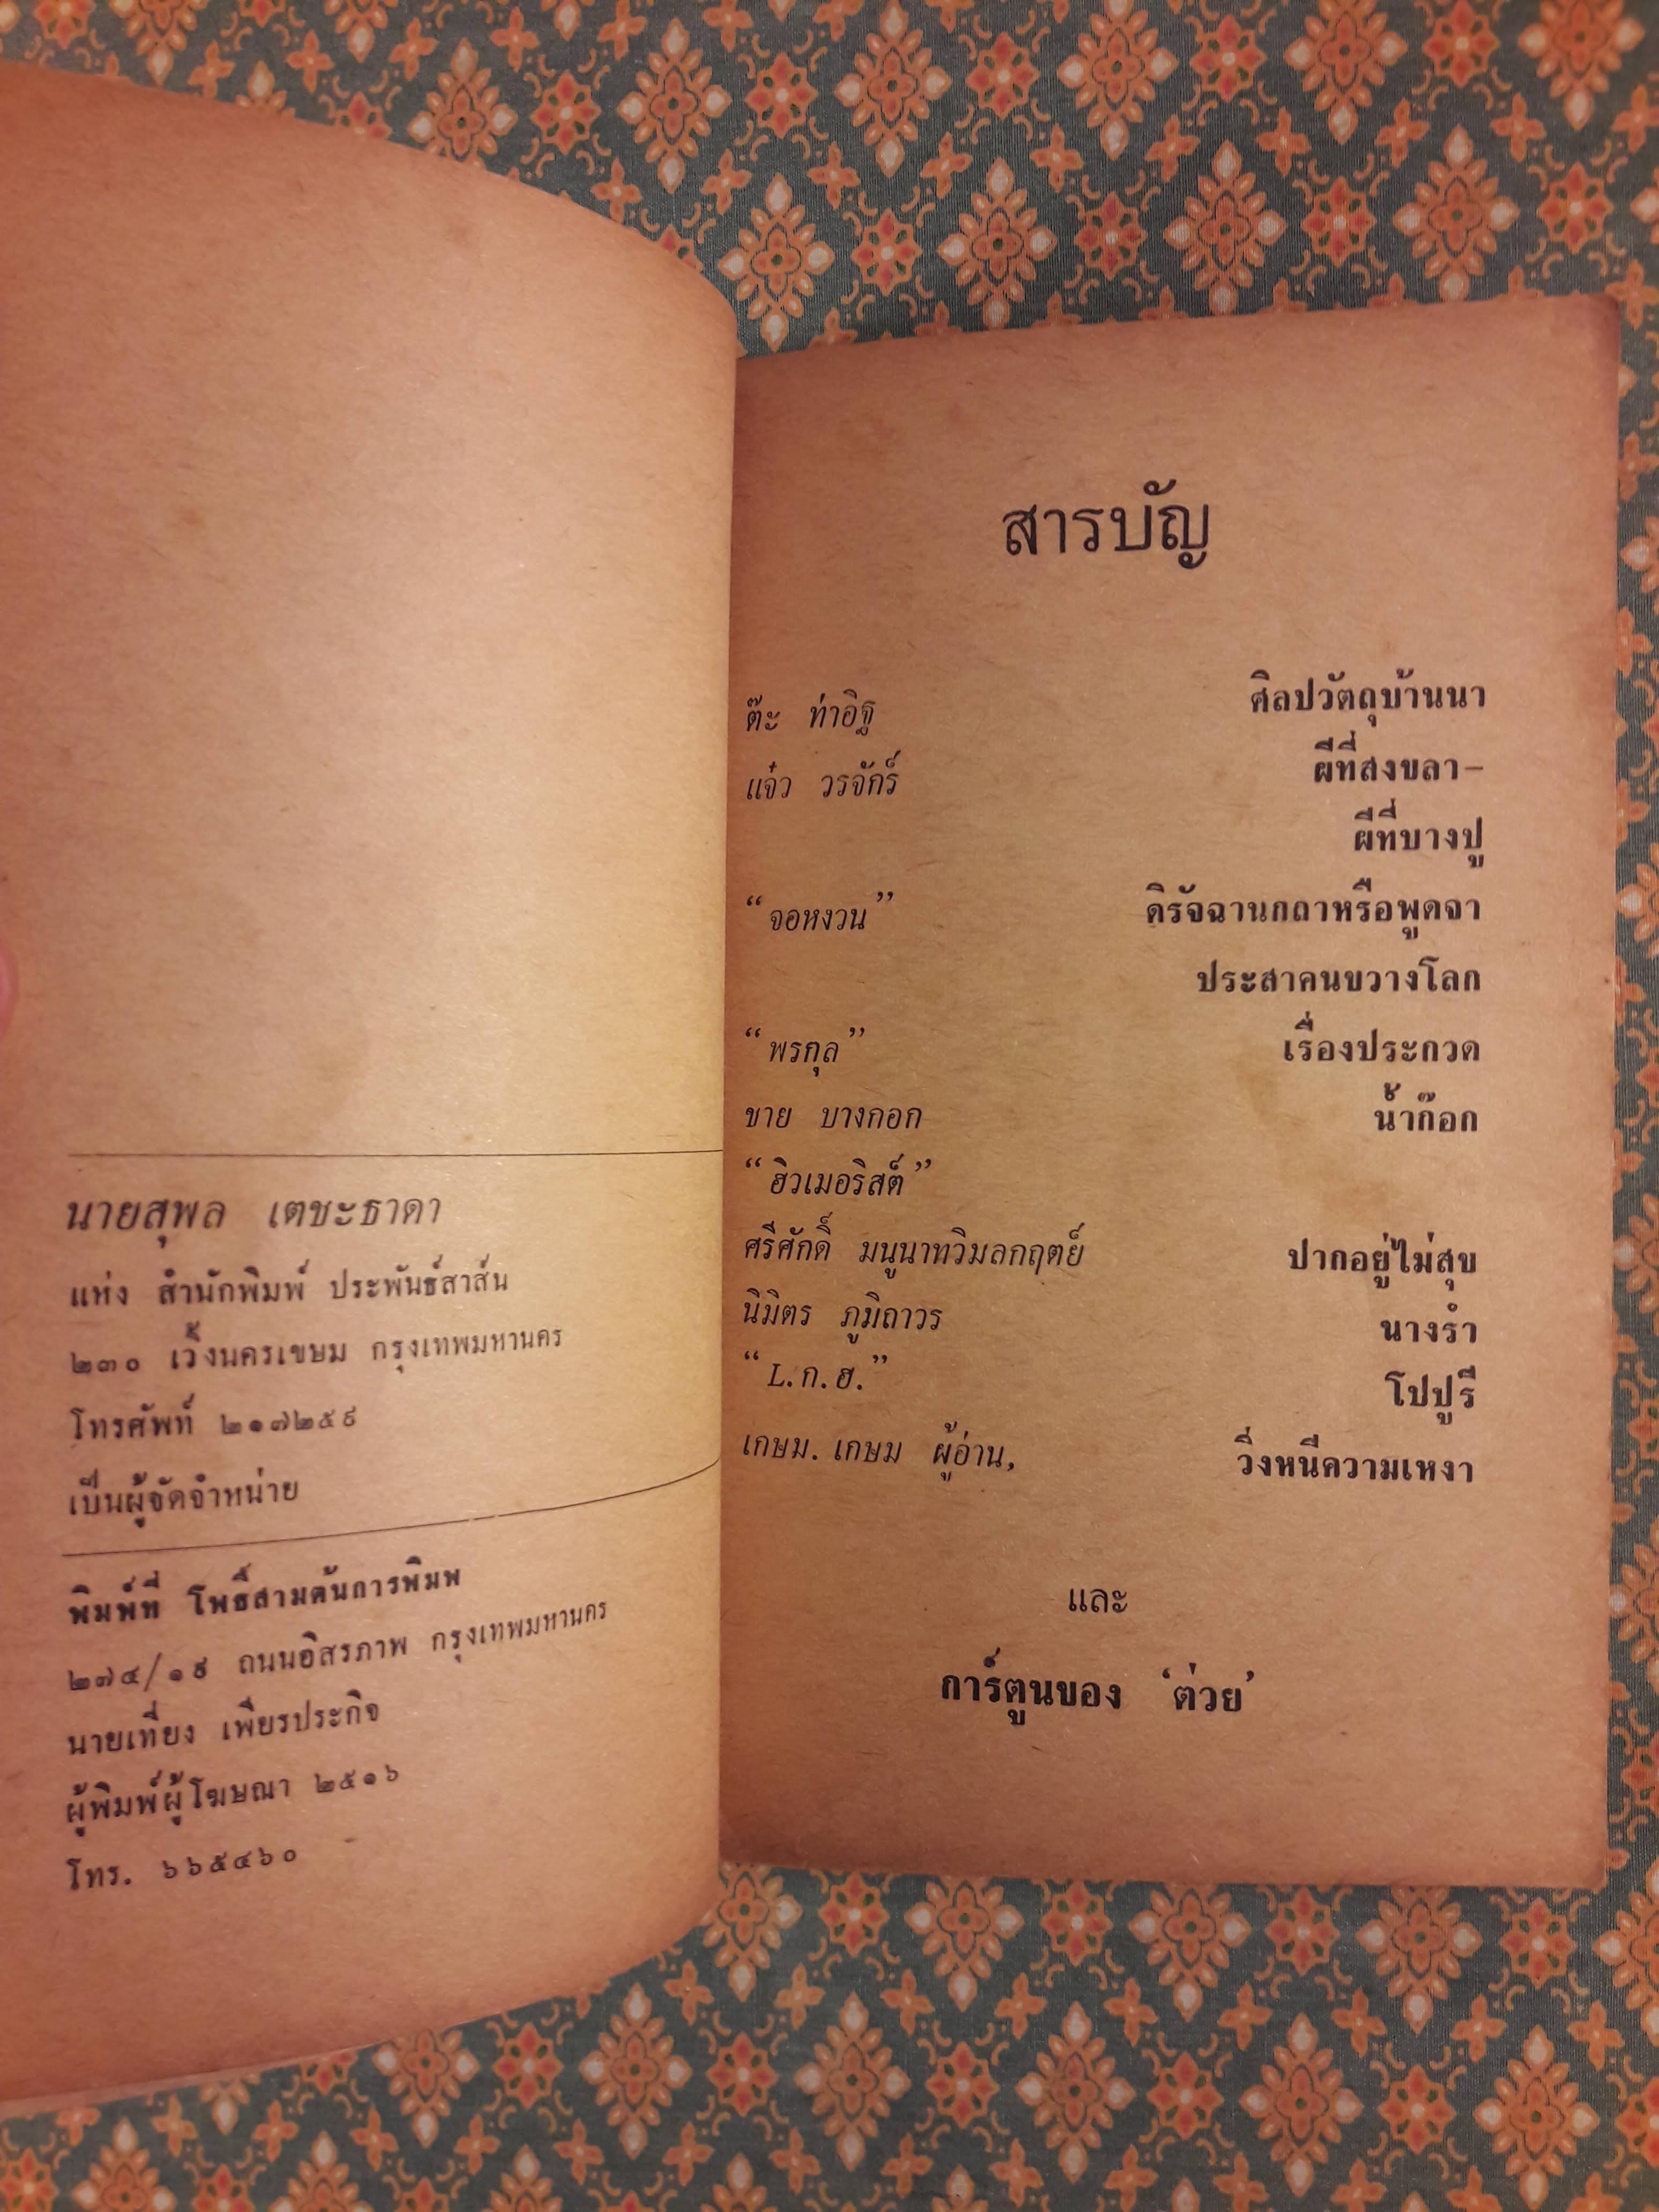 นายสุพล เตชะธาดา
แห่ง สำนักพิมพ์ ประพันธ์สาส์น
๒๓๐ เวิ้งนครเขษม กรุงเทพมหานคร
โทรศัพท์ ๒๑๗๒๕๙
เป็นผู้จัดจำหน่าย
พิมพ์ที่ โพธิ์สามต้นการพิมพ
๒๗๔/๑๙ ถนนอิสรภาพ กรุงเทพมหานคร
นายเที่ยง เพียรประกิจ
ผู้พิมพ์ผู้โฆษณา ๒๕๑๖
โทร. ๖๖๕๔๖๐
สารบัญ
ต๊ะ ท่าอิฐ ศิลปวัตถุบ้านนา
แจ๋ว วรจักร์ ผีที่สงขลา–
ผีที่บางปู
“จอหงวน” ดิรัจฉานกถาหรือพูดจา
ประสาคนขวางโลก
“พรกุล” เรื่องประกวด
ขาย บางกอก น้ำก๊อก
“ฮิวเมอริสต์”
ศรีศักดิ์ มนูนาทวิมลกฤตย์ ปากอยู่ไม่สุข
นิมิตร ภูมิถาวร นางรำ
“L.ก.ฮ.” โปปูรี
เกษม. เกษม ผู้อ่าน, วิ่งหนีความเหงา
และ
การ์ตูนของ ‘ต่วย’